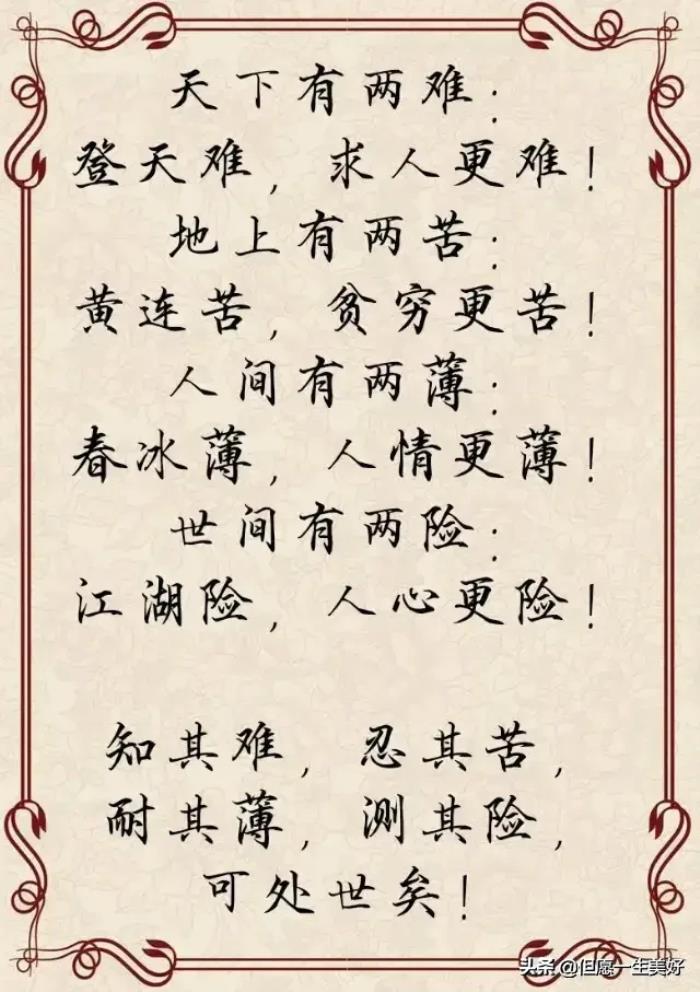 天下有两难：
登天难，求人更难！
地上有两苦：
黄连苦，贫穷更苦！
人间有两薄：
春冰薄，人情更薄！
世间有两险：
江湖险，人心更险！
知其难，忍其苦，
耐其薄，测其险，
可处世矣！
头条 @但愿一生美好